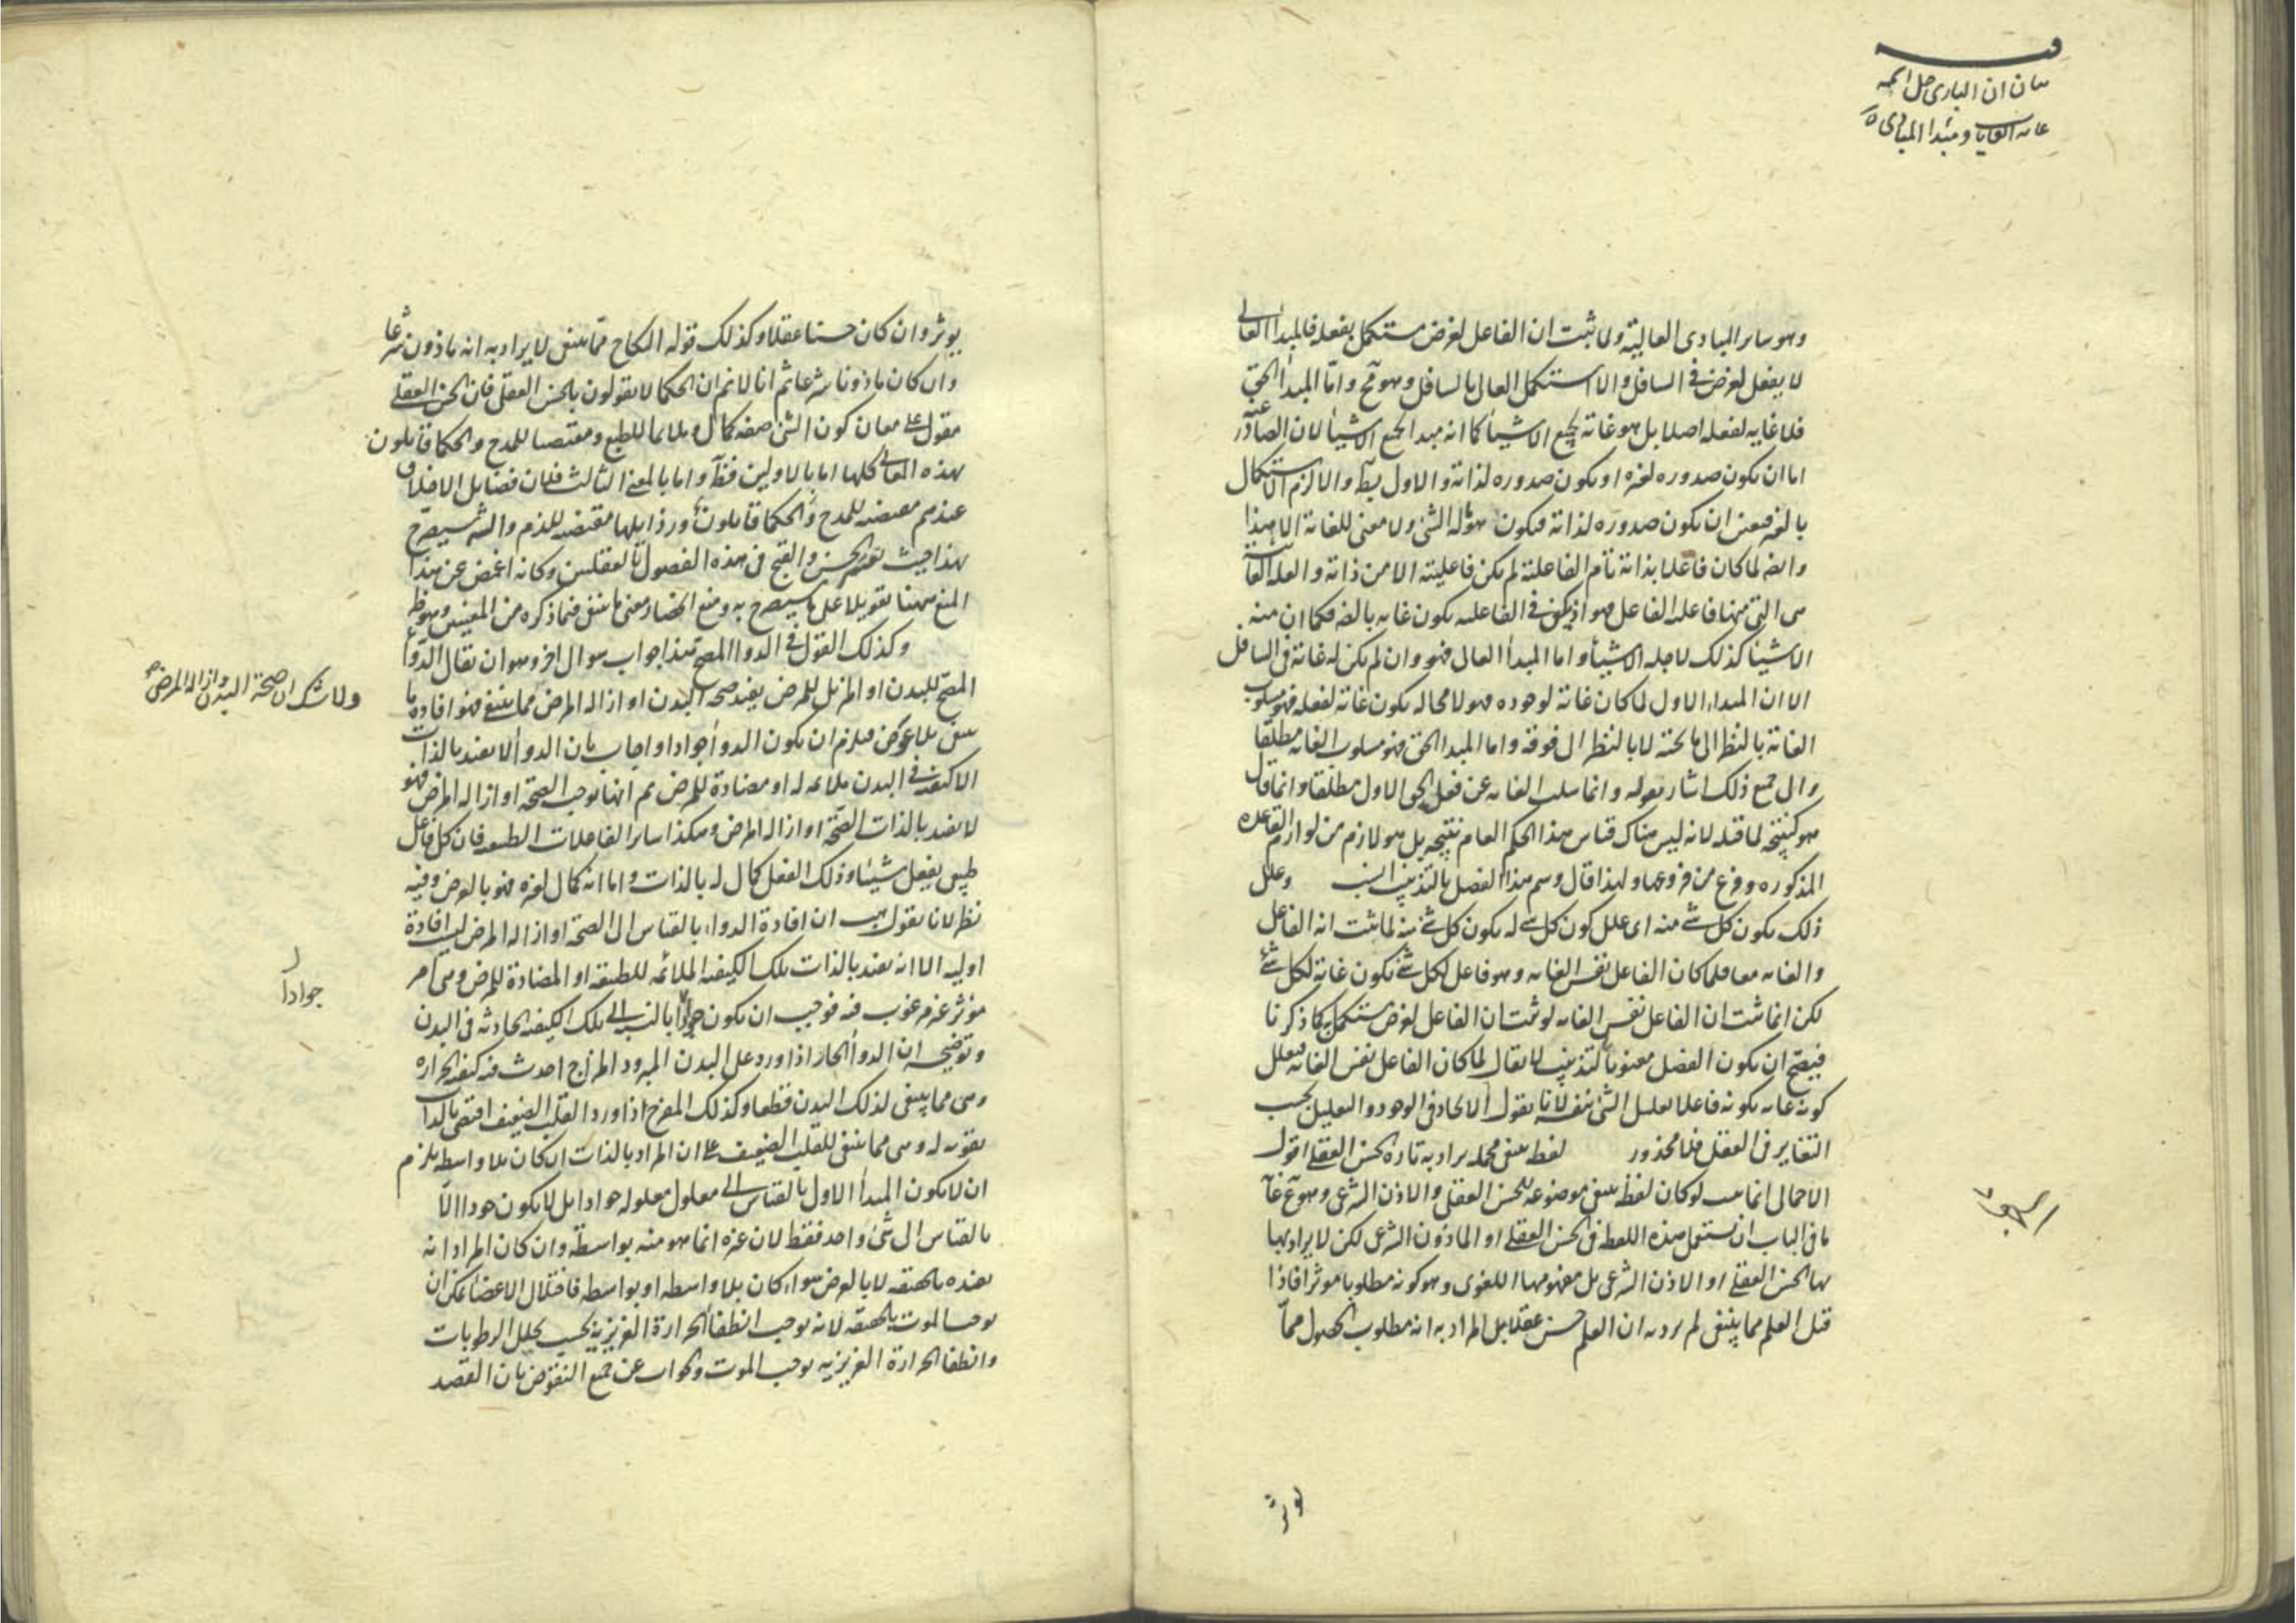 فيه
بيان ان الباري جل اسمه
غاية الغايات و مبتدا المبادى
وهو ساير المبادى العالية ولما ثبت ان الفاعل لغرض مستكمل بفعله فالمبدأ العالى
لا يفعل لغرض فى السافل والا استكمل العالى بالسافل وهو مح واما المبدأ الحق
فلا غاية لفعله اصلا بل هو غاية لجميع الاشيأ كما انه مبدا لجميع الاشيأ لان الصادر عنه
اما ان يكون صدوره لغيره او يكون صدوره لذاته والاول بط والا لزم الاستكمال
بالغير فتعين ان يكون صدوره لذاته فيكون هو له الشئ ولا معنى للغاية الا هذا
وايضه لما كان فاعلا بذاته تام الفاعلية لم يكن فاعليته الا من ذاته والعلة الغائية
هى التى منها فاعلية الفاعل فهو اذ يكفى فى الفاعليه يكون غايه بالضه فكما ان منه
الاشيا كذلك لاجله الاشيأ واما المبدأ العالى فهو وان لم يكن له غاية فى السافل
الا ان المبداء الاول لما كان غاية لوجوده فهو لا محاله يكون غاية لفعله فهو مسلوب
الغاية بالنظر الى ما تحته لا بالنظر الى فوقه واما المبدا الحق فهو مسلوب الغايه مطلقا
والى جميع ذلك اشار بقوله وانما سلب الغايه عن فعل الحق الاول مطلقا وانما قال
هو كنتيجة لما قبله لانه ليس هناك قياس هذا الحكم العام نتيجه بل هو لازم من لوازم القاعده
المذكوره وفرع من فروعها ولهذا قال وسم هذا الفصل بالتذنيب انسب وعلل
ذلك بكون كل شئ منه اى علل كون كل شئ له بكون كل شئ منه لما ثبت انه الفاعل
والغايه معا فلما كان الفاعل نفس الغايه وهو فاعل لكل شئ يكون غاية لكل شئ
لكن انما ثبت ان الفاعل نفس الغايه لو ثبت ان الفاعل لغرض مستكمل به كما ذكرنا
فيصح ان يكون الفصل معنونا بالتذنيب لا يقال لما كان الفاعل نفس الغايه فتعليل
كونه غايه بكونه فاعلا تعليل الشئ بنفسه لانا نقول الاتحاد فى الوجود والتعليل بحسب
التغاير فى العقل فلا محذور لفظ ينبغى مجمله يراد به تارة الحسن العقلى اقول
الاجمال انما يثبت لو كان لفظ ينبغى موضوعة للحسن العقلى والاذن الشرعى وهو مم غاية
ما فى الباب ان يستعمل هذه اللفظ فى الحسن العقلى او الماذون الشرعى لكن لا يراد بها
بها الحسن العقلى او الاذن الشرعى بل مفهومها اللغوى وهو كونه مطلوبا موثرا فاذا
قيل العلم مما ينبغى لم يرد به ان العلم حسن عقلا بل المراد به انه مطلوب الحصول مما
يوثر
يوثر وان كان حسنا عقلا وكذلك قوله النكاح مما ينبغى لا يراد به انه ماذون شرعا
وان كان ماذونا شرعا ثم انا لا نم ان الحكما لا يقولون بالحسن العقلى فان الحسن العقلى
مقول على معان كون الشئ صفه كمال وملايما للطبع ومقتضيا للمدح والحكما قايلون
بهذه المعانى كلها اما بالاولين فظ واما بالمعنى الثالث فلان فضايل الاخلاق
عندهم مقتضيه للمدح والحكما قايلون ورذايلها مقتضيه للذم والشه سيصرح
بهذا حيث يفسر الحسن والقبح فى هذه الفصول بالعقليين وكانه اغمض عن هذا
المنع ههنا تعويلا على ما سيصرح به ومنع انحصار معنى ما ينبغى فيما ذكره من المعنيين وهو ظ
وكذلك القول فى الدوا المصح هذا جواب سوال اخر وهو ان يقال الدوأ
المصح للبدن او المزيل للمرض يفيد صحه البدن او ازاله المرض مما ينبغى فهو افادة ما
ولا شك ان صحة البدن وازاله المرض
ينبغى بلا عوض فيلزم ان يكون الدوأ جوادا واجاب بان الدوأ لا يفيد بالذات
الا كيفية فى البدن ملائمه له او مضادة للمرض ثم انها توجب الصحة او ازاله المرض فهو
لا يفيد بالذات الصحة او ازاله المرض وهكذا ساير الفاعلات الطبيعيه فان كل فاعل
طبيعى يفعل شيئا وذلك الفعل كمال له بالذات واما انه كمال لغيره فهو بالعرض وفيه
نظر لانا نقول هب ان افادة الدواء بالقياس الى الصحة او ازاله المرض ليست افادة
اوليه الا انه يفيد بالذات تلك الكيفيه الملائمه للطبيعه او المضادة للمرض وهى امر
موثر غير مرغوب فيه فوجب ان يكون جوادا بالنسبة الى تلك الكيفيه الحادثه فى البدن
جوادا
وتوضيحه ان الدوأ الحار اذا ورد على البدن المبرود المزاج احدث فيه كيفيه الحراره
وهى مما ينبغى لذلك البدن قطعا وكذلك المفرح اذا ورد القلب الضعيف اقتضى بالذات
تقويه له وهى مما ينبغى للقلب الضعيف على ان المراد بالذات ان كان بلا واسطه يلزم
ان لا يكون المبدأ الاول بالقياس الى معلول معلوله جوادا بل لا يكون جوادا الا
بالقياس الى شئ واحد فقط لان غيره انما هو منه بواسطه وان كان المراد انه
يفيده بالحقيقه لا بالعرض سواء كان بلا واسطه او بواسطه فاختلال الاعضا يمكن ان
يوجب الموت بالحقيقه لانه يوجب انطفأ الحرارة الغريزية بحسب تحلل الرطوبات
وانطفا الحرارة الغريزيه يوجب الموت والجواب عن جميع النقوض بان القصد